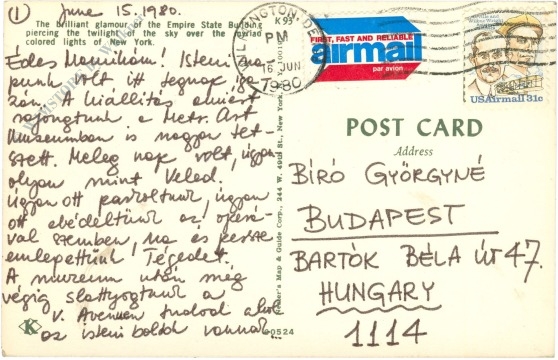 ① June 15. 1980.
The brilliant glamour of the Empire State Building K 93
piercing the twilight of the sky over the myriad
colored lights of New York.
Édes Mamikám! Isteni na-
punk volt itt tegnap iga-
zán. A kiállítás amiért
rajongtunk a Metr. Art
Museumban is nagyon tet-
szett. Meleg nap volt, ugyan-
olyan mint Veled.
Ugyan ott parkoltunk, ugyan
ott ebédeltünk az operá-
val szemben, na és persze
emlegettünk Tégedet.
A muzeum után még
végig slattyogtunk a
V. Avenuen tudod ahol
az isteni boltok vannak...
WILMINGTON DE
PM
16 JUN
1980
FIRST, FAST AND RELIABLE
airmail
par avion
Wilbur Wright
USAirmail 31c
POST CARD
Address
BÍRÓ GYÖRGYNÉ
BUDAPEST
BARTÓK BÉLA ÚT 47.
HUNGARY
1114
Map & Guide Corp., 244 W. 49th St., New York
K